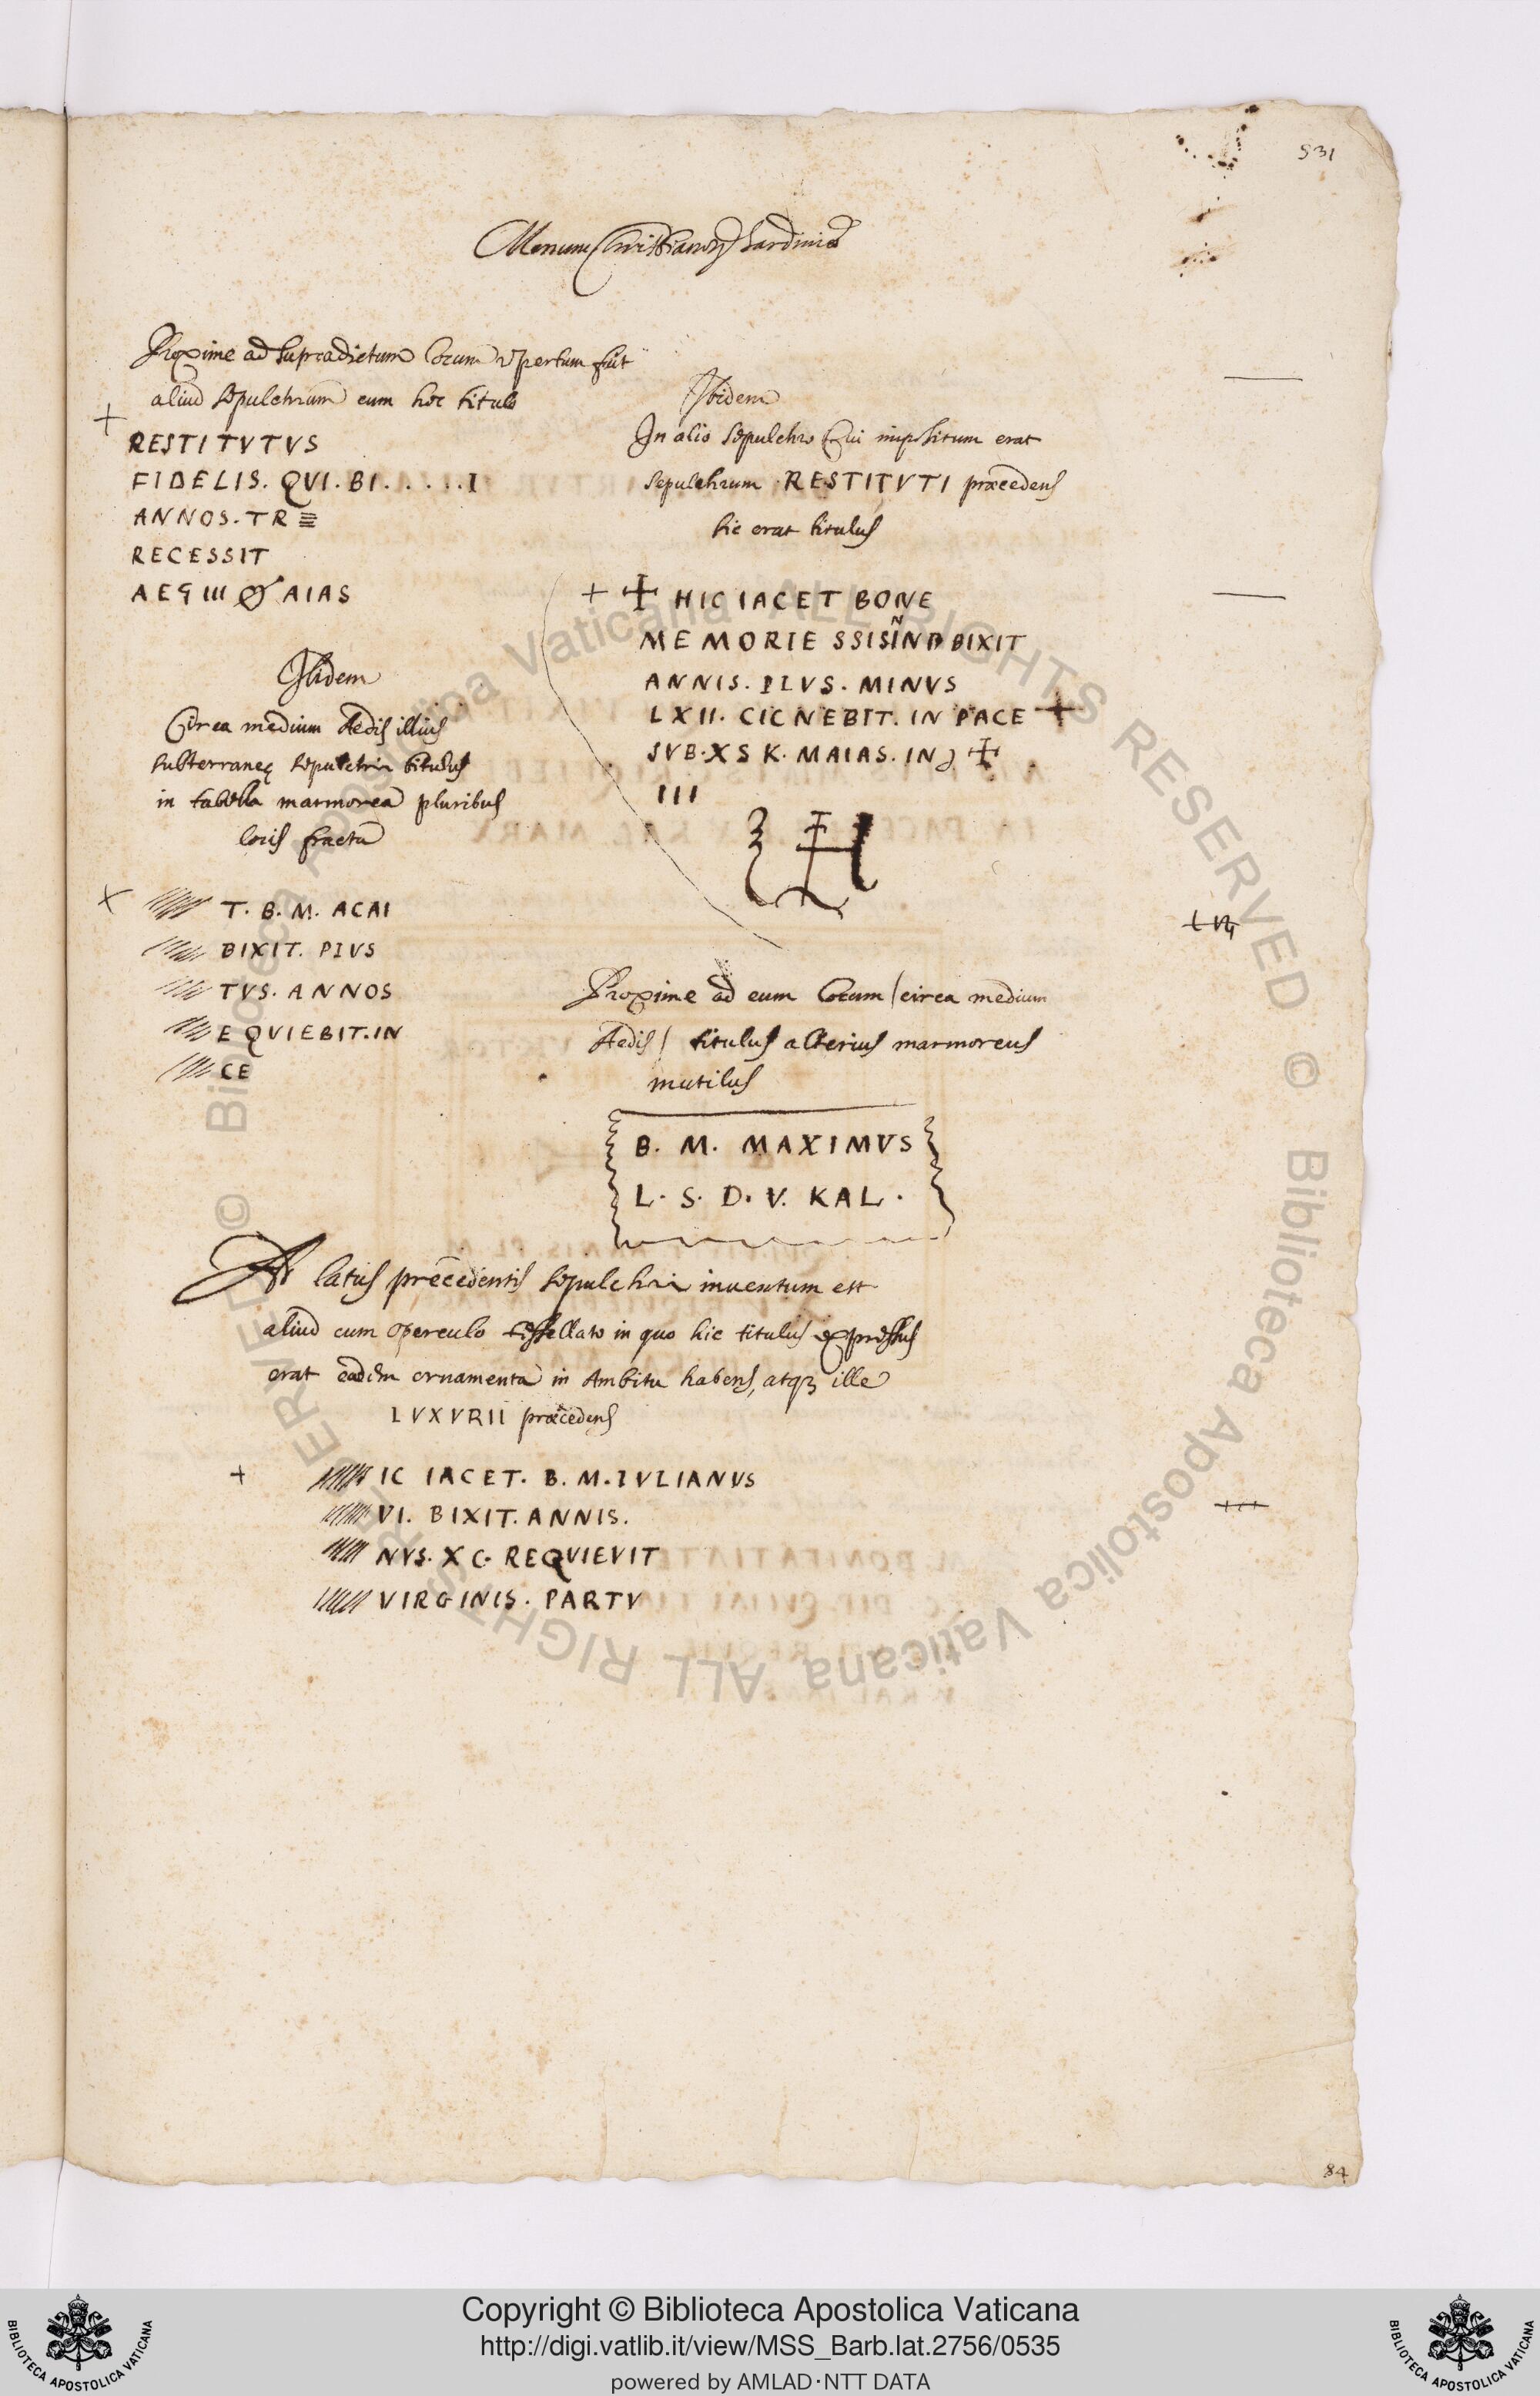 531
Monum Christianorꝝ Sardiniæ
Proxime ad supradictum locum repertum fuit
aliud sepulchrum cum hoc titulo
+
RESTITVTVS
FIDELIS. QVI. BI. . . . . I
ANNOS. TR
RECESSIT
AIAS
Ibidem
Circa medium Aedis illius
subterraneę sepulchri titulus
in tabella marmorea pluribus
locis fracta
T. B. M. ACAI
BIXIT. PIVS
TVS. ANNOS
E QVIEBIT. IN
CE
Ibidem
In alio sepulchro Cui impositum erat
sepulchrum RESTITVTI præcedens
hic erat titulus
+ ✝ HIC IACET BONE
MEMORIE BIXIT
ANNIS. PLVS. MINVS
LXII. CICNEBIT. IN PACE +
SVB. X S K. MAIAS. IN ✝
III
Proxime ad eum locum / circa medium
Aedis / titulus alterius marmoreus
mutilus
B. M. MAXIMVS
L. S. D. V. KAL.
Ad latus præcedentis sepulchri inuentum est
aliud cum operculo tessellato in quo hic titulus expressus
erat eadem ornamenta in Ambitu habens, atqꝫ ille
LVXVRII præcedens
+
IC IACET. B. M. IVLIANVS
VI. BIXIT. ANNIS.
NVS. XC. REQVIEVIT
VIRGINIS. PARTV
84
© Biblioteca Apostolica Vaticana ALL RIGHTS RESERVED © Biblioteca Apostolica Vaticana ALL RIGHTS RESERVED
Copyright © Biblioteca Apostolica Vaticana
http://digi.vatlib.it/view/MSS_Barb.lat.2756/0535
powered by AMLAD·NTT DATA
BIBLIOTECA APOSTOLICA VATICANA
BIBLIOTECA APOSTOLICA VATICANA